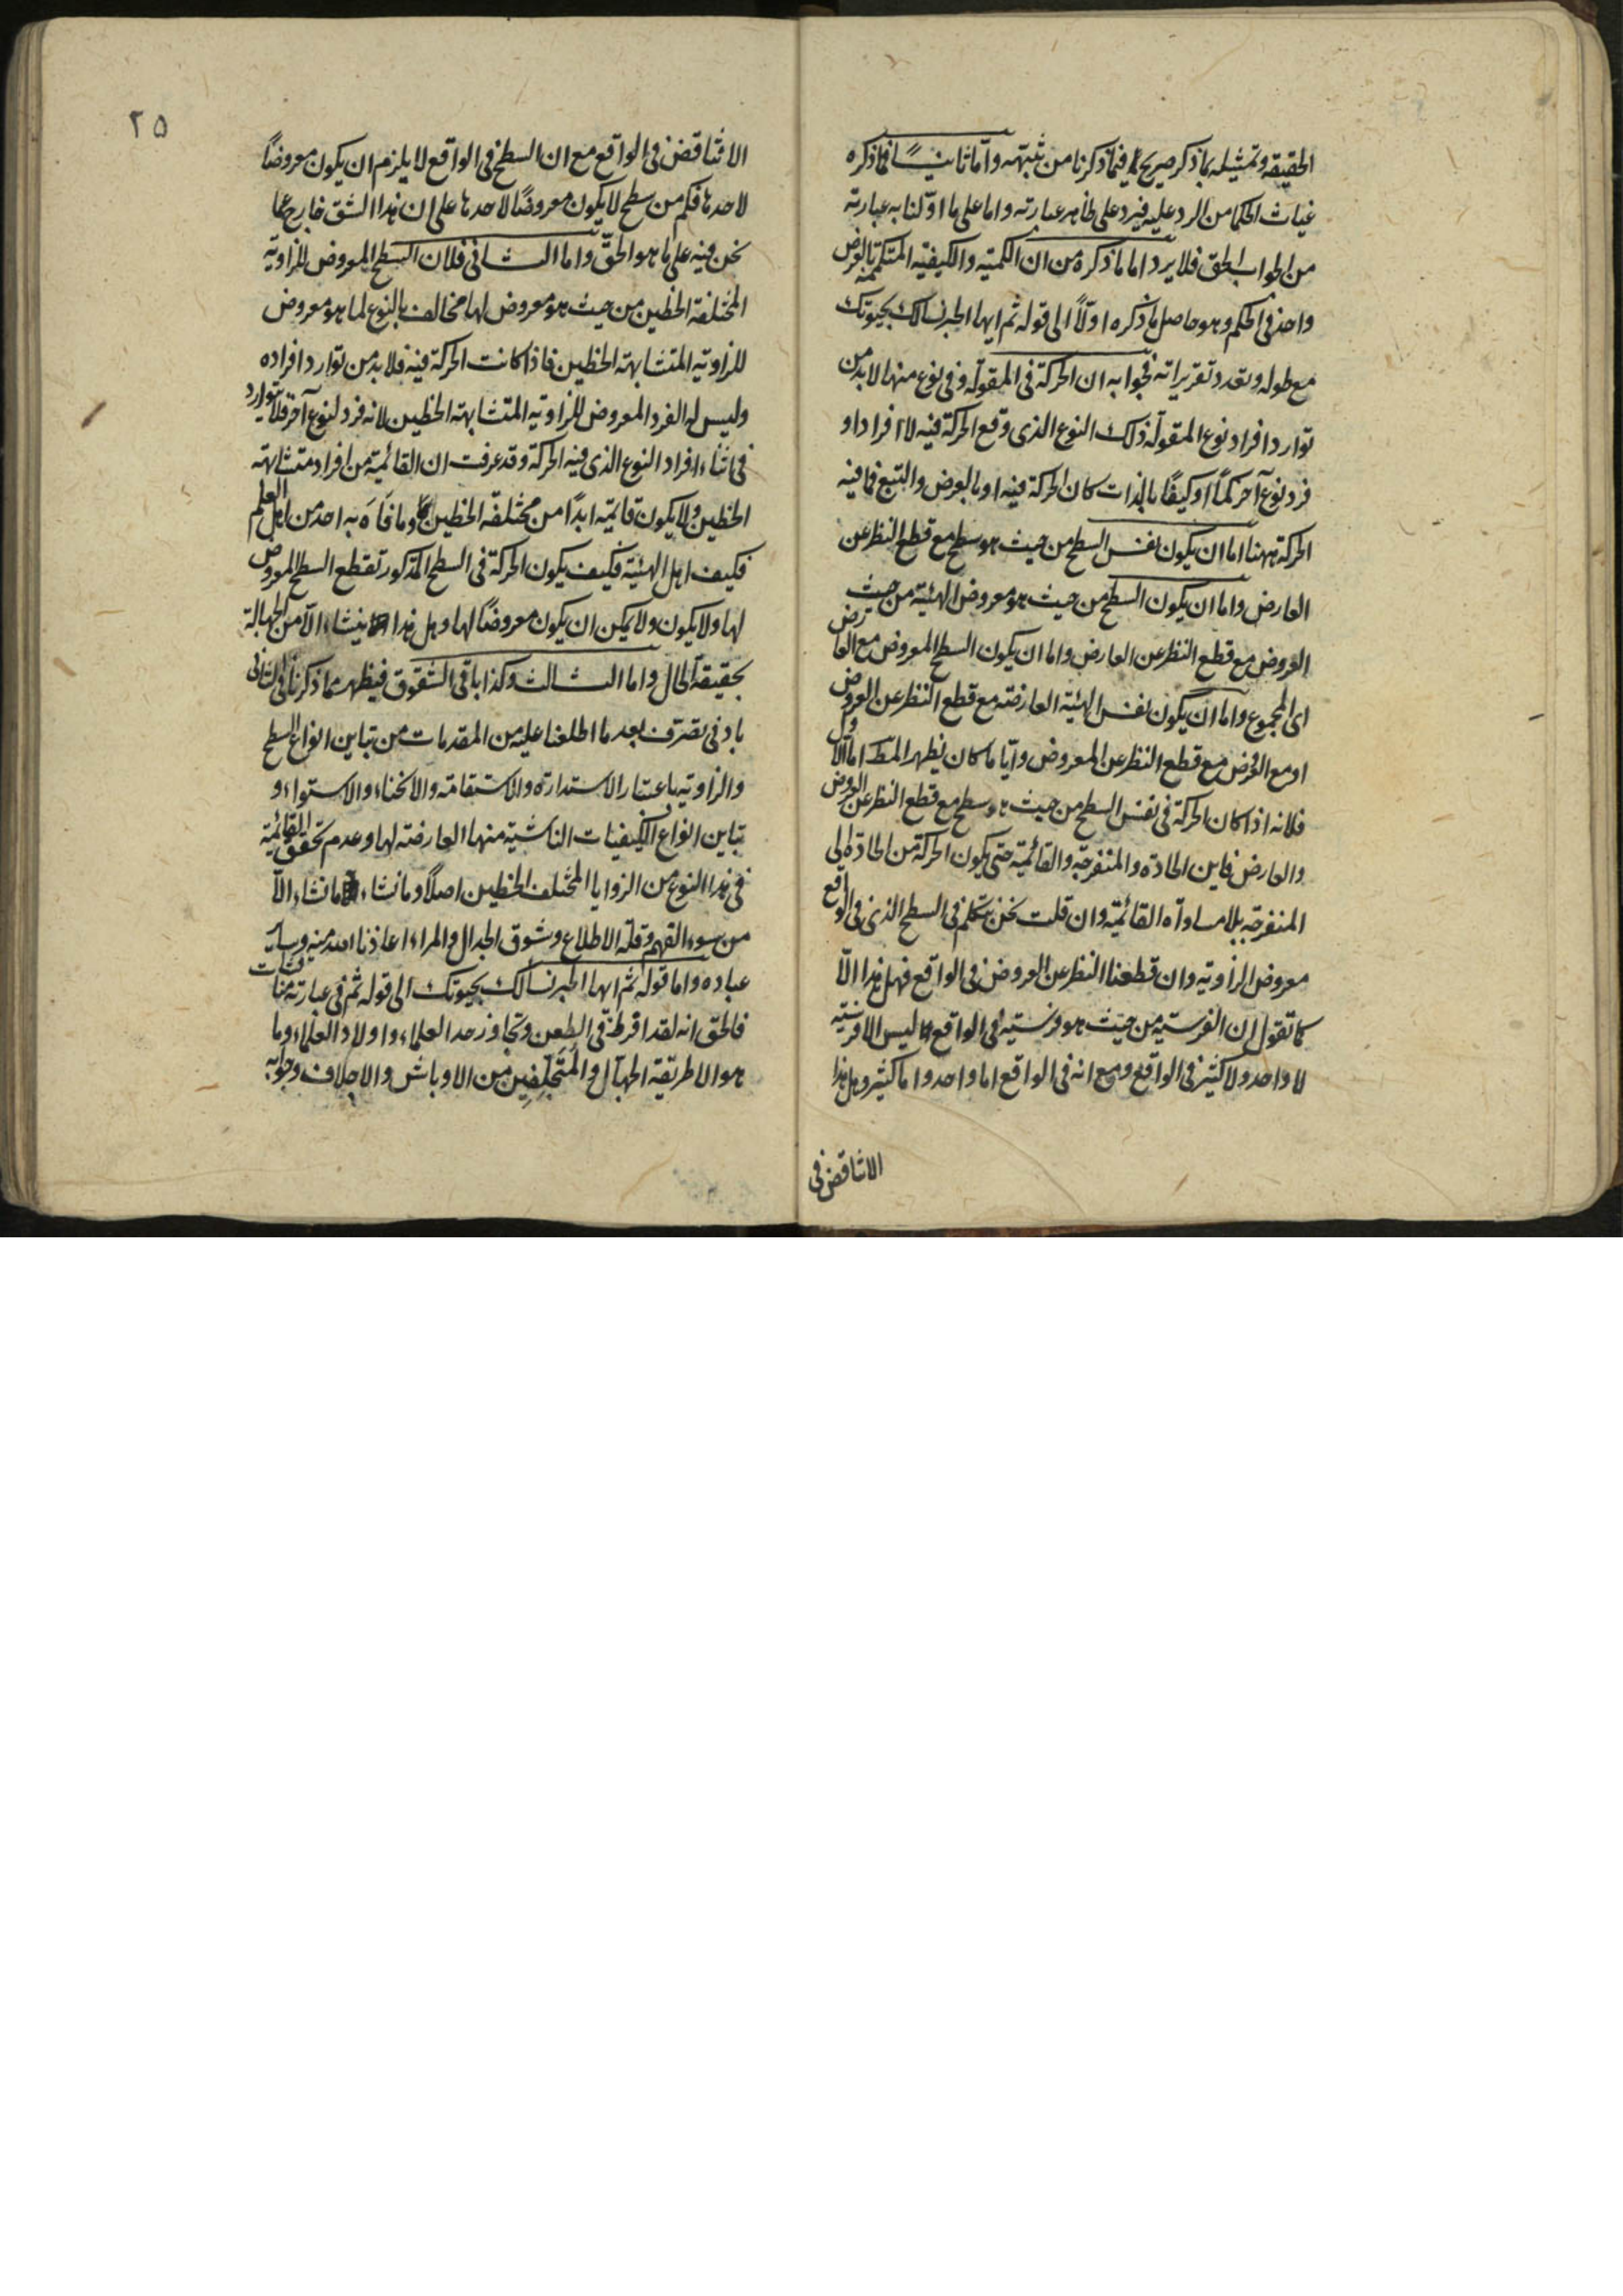 الحقيقه وتمثيله بما ذكر صريح فيما ذكرنا من شبهته واما ثانيا فما ذكره
غياث الحكما من الرد عليه فيرد على ظاهر عبارته واما على ما اولنا به عبارته
من الجواب الحق فلا يرد اما ما ذكره من ان الكمية والكيفية المتكممة بالعرض
واحد فى الحكم وهو حاصل ما ذكره اولًا الى قوله ثم ايها الحبر نسالك بحيوتك
مع طوله وتعدد تقريراته فجوابه ان الحركة فى المقولة وفى نوع منها لا بد من
توارد افراد نوع المقولة ذلك النوع الذى وقع الحركة فيه لا افراد او
فرد نوع آخر كمًا او كيفًا بالذات كان الحركة فيه او بالعرض والتبع فما فيه
الحركة ههنا اما ان يكون نفس السطح من حيث هو سطح مع قطع النظر عن
العارض واما ان يكون السطح من حيث هو معروض الهيئة من حيث
العروض مع قطع النظر عن العارض واما ان يكون السطح المعروض مع العارض
اى المجموع واما ان يكون نفس الهيئة العارضة مع قطع النظر عن العروض
او مع العرض مع قطع النظر عن المعروض وايا ما كان يظهر المط اما الاول
فلانه اذا كان الحركة فى نفس السطح من حيث هو سطح مع قطع النظر عن العروض
والعارض فاين الحادة والمنفرجة والقائمة حتى يكون الحركة من الحادة الى
المنفرجة بلا مساواة القائمة وان قلت نحن نتكلم فى السطح الذى فى الواقع
معروض الزاوية وان قطعنا النظر عن العروض فى الواقع فهل هذا الّا
كما تقول ان الفرسية من حيث هو فرسية فى الواقع ليس الا فرسية
لا واحد ولا كثير فى الواقع ومع انه فى الواقع اما واحد واما كثير وهل هذا
الا تناقض فى
٢٥
الا تناقض فى الواقع مع ان السطح فى الواقع لا يلزم ان يكون معروضًا
لاحدها فكم من سطح لا يكون معروضًا لاحدها على ان هذا الشق خارج عما
نحن فيه على ما هو الحقّ واما الثانى فلان السطح المعروض للزاوية
المختلفة الخطين من حيث هو معروض لها مخالف بالنوع لما هو معروض
للزاوية المتشابهة الخطين فاذا كانت الحركة فيه فلا بد من توارد افراده
وليس له الفرد المعروض للزاوية المتشابهة الخطين لانه فرد لنوع آخر فلا توارد
فى اثناء افراد النوع الذى فيه الحركة وقد عرفت ان القائمة من افراد متشابهة
الخطين ولا يكون قايمة ابدًا من مختلفة الخطين وما فَاَه به احد من اهل العلم
فكيف اهل الهيئة فكيف يكون الحركة فى السطح المذكور تقطع السطح المعروض
لها ولا يكون ولا يمكن ان يكون معروضًا لها وهل هذا ينشاء الّا من الجهالة
بحقيقة الحال واما الثالث وكذا باقى الشقوق فيظهر مما ذكرنا فى الثانى
بادنى تصرف بعد ما اطلعنا عليه من المقدمات من تباين انواع السطح
والزاوية باعتبار الاستدارة والاستقامة والانحناء والاستواء و
تباين انواع الكيفيات الناشية منها العارضة لها وعدم تحقق القائمية
فى هذا النوع من الزوايا المختلف الخطين اصلًا وما نشاء ما نشاء الّا
من سوء الفهم وقلة الاطلاع وشوق الجدال والمراء اعاذنا الله منه وساير
عباده واما قوله ثم ايها الحبر نسالك بحيوتك الى قوله ثم فى عبارته مناقشات
فالحق انه لقد افرط فى الطعن وتجاوز حد العلماء واولاد العلماء وما
هو الا طريقة الجهّال والمُتَجلِفِين من الاوباش والاجلاف وجوابه